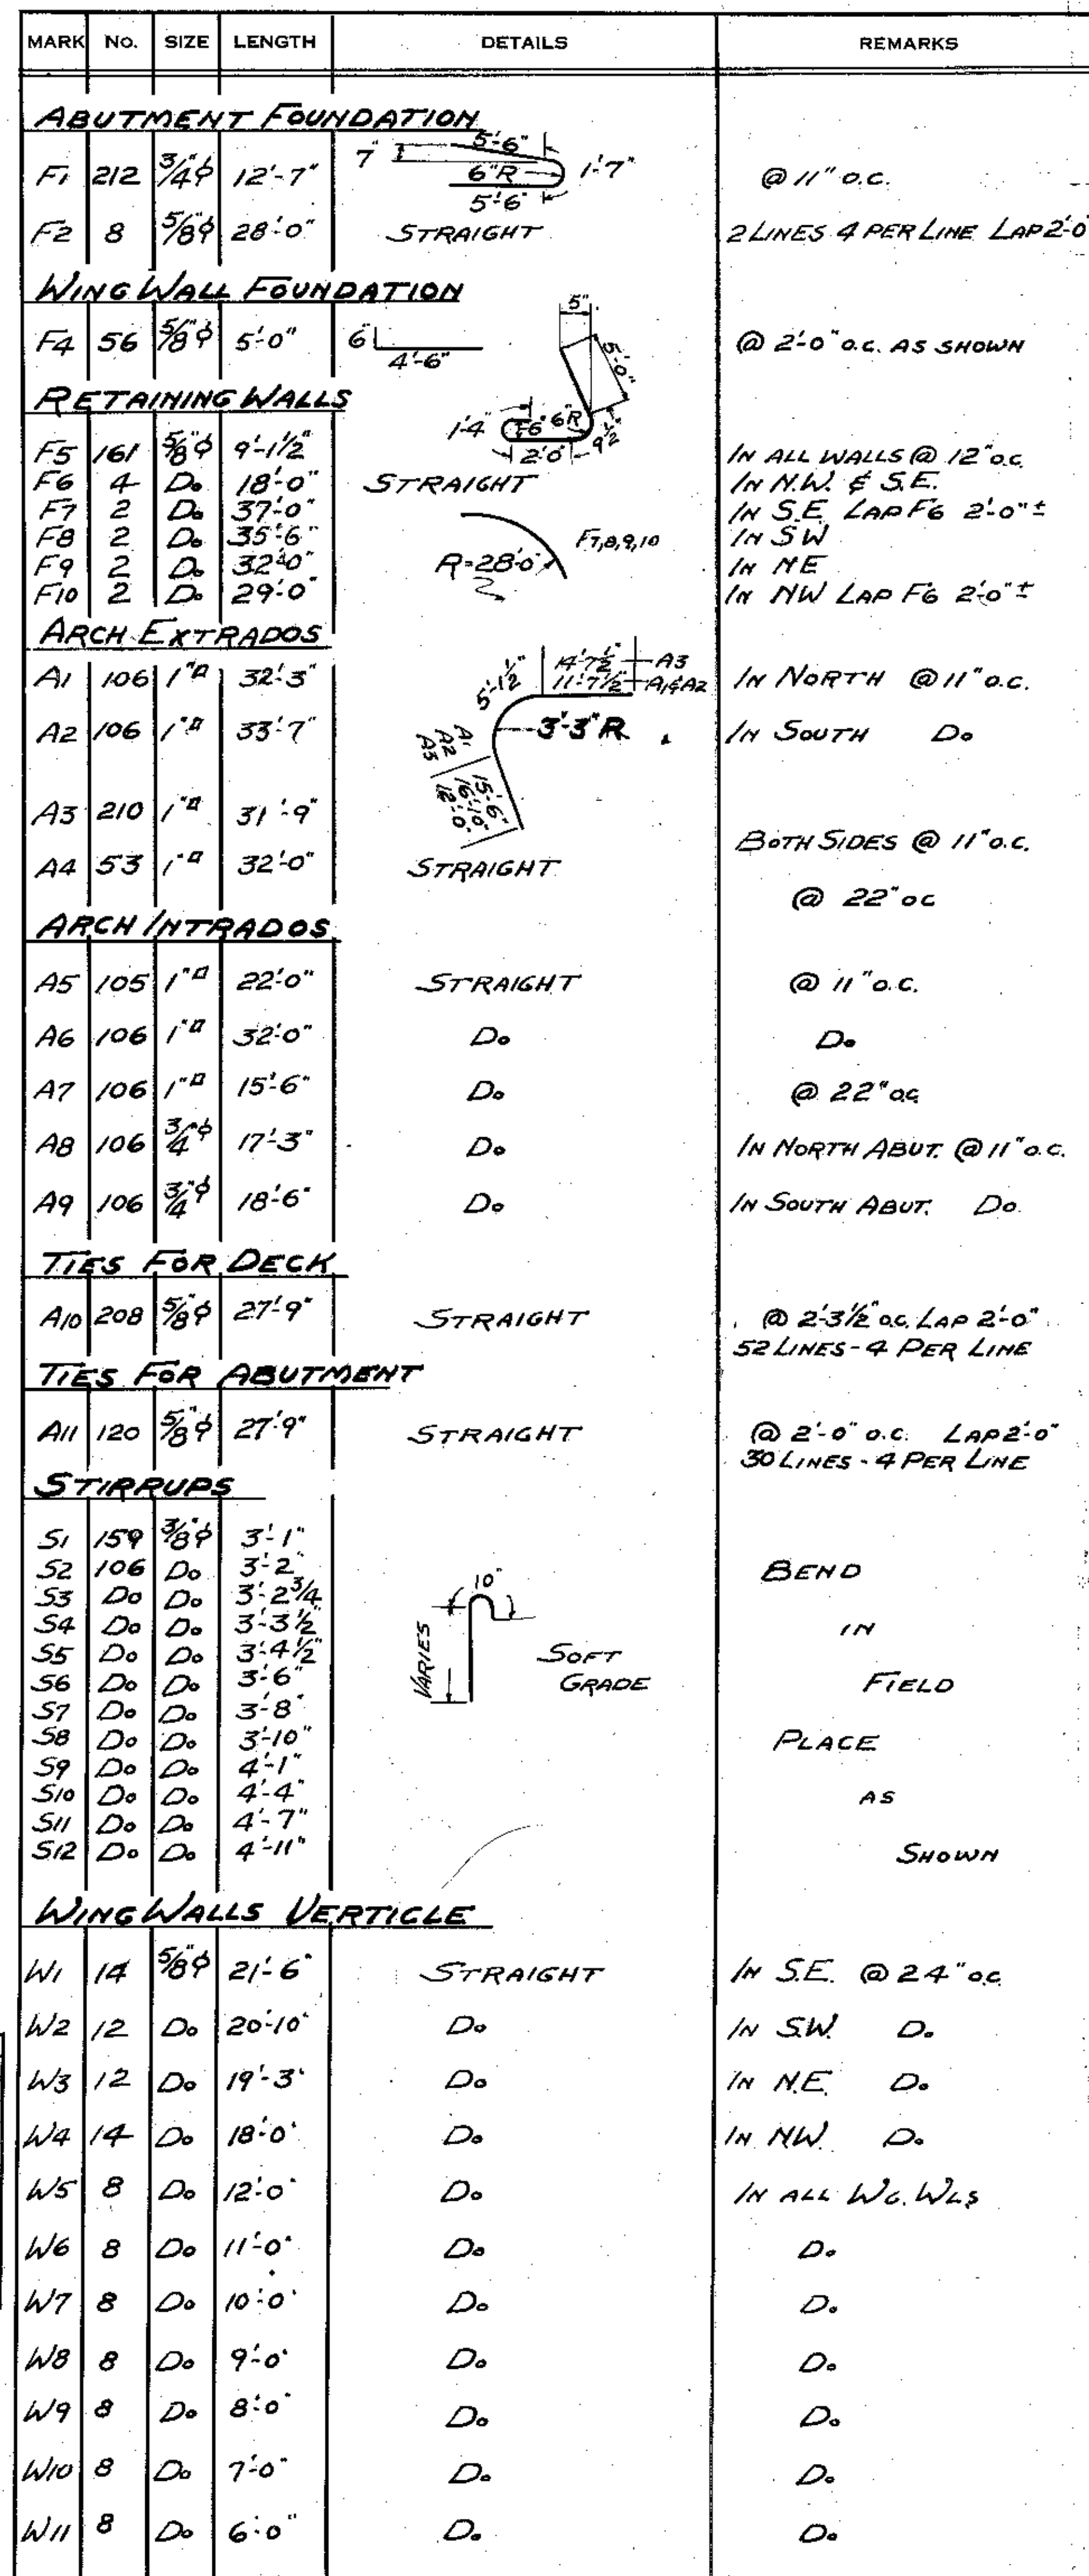 MARK No. SIZE LENGTH DETAILS REMARKS
ABUTMENT FOUNDATION
F1 212 3/4"φ 12'-7" 7" 5'-6" 6"R 1'-7" 5'-6" @ 11" o.c.
F2 8 5/8"φ 28'-0" STRAIGHT 2 LINES 4 PER LINE LAP 2'-0"
WING WALL FOUNDATION
F4 56 5/8"φ 5'-0" 6" 4'-6" @ 2'-0" o.c. AS SHOWN
RETAINING WALLS
5" 5'-0" 1'-4" 6" 6"R 2'-0" 9½"
F5 161 5/8"φ 9'-1½" IN ALL WALLS @ 12" o.c.
F6 4 Do 18'-0" STRAIGHT IN N.W. & S.E.
F7 2 Do 37'-0" IN S.E. LAP F6 2'-0"±
F8 2 Do 35'-6" R=28'-0" F7,8,9,10 IN SW
F9 2 Do 32'-0" IN NE
F10 2 Do 29'-0" IN NW LAP F6 2'-0"±
ARCH EXTRADOS
A1 106 1"⌑ 32'-3" 5'-1½" 14'-7½" A3 IN NORTH @ 11" o.c.
11'-7½" A1&A2
A2 106 1"⌑ 33'-7" 3'-3"R. IN SOUTH Do
A1 15'-6"
A2 16'-10"
A3 12'-0"
A3 210 1"⌑ 31'-9" BOTH SIDES @ 11" o.c.
A4 53 1"⌑ 32'-0" STRAIGHT @ 22" oc
ARCH INTRADOS
A5 105 1"⌑ 22'-0" STRAIGHT @ 11" o.c.
A6 106 1"⌑ 32'-0" Do Do
A7 106 1"⌑ 15'-6" Do @ 22" oc
A8 106 3/4"φ 17'-3" Do IN NORTH ABUT. @ 11" o.c.
A9 106 3/4"φ 18'-6" Do IN SOUTH ABUT. Do
TIES FOR DECK
A10 208 5/8"φ 27'-9" STRAIGHT @ 2'-3½" oc. LAP 2'-0"
52 LINES - 4 PER LINE
TIES FOR ABUTMENT
A11 120 5/8"φ 27'-9" STRAIGHT @ 2'-0" o.c. LAP 2'-0"
30 LINES - 4 PER LINE
STIRRUPS
S1 159 3/8"φ 3'-1"
S2 106 Do 3'-2" 10" BEND
S3 Do Do 3'-2¾
S4 Do Do 3'-3½" IN
S5 Do Do 3'-4½" VARIES SOFT
S6 Do Do 3'-6" GRADE FIELD
S7 Do Do 3'-8"
S8 Do Do 3'-10" PLACE
S9 Do Do 4'-1"
S10 Do Do 4'-4" AS
S11 Do Do 4'-7"
S12 Do Do 4'-11" SHOWN
WING WALLS VERTICLE
W1 14 5/8"φ 21'-6" STRAIGHT IN S.E. @ 24" oc
W2 12 Do 20'-10" Do IN S.W. Do
W3 12 Do 19'-3" Do IN N.E. Do
W4 14 Do 18'-0" Do IN NW. Do
W5 8 Do 12'-0" Do IN ALL WG. WLS
W6 8 Do 11'-0" Do Do
W7 8 Do 10'-0" Do Do
W8 8 Do 9'-0" Do Do
W9 8 Do 8'-0" Do Do
W10 8 Do 7'-0" Do Do
W11 8 Do 6'-0" Do Do